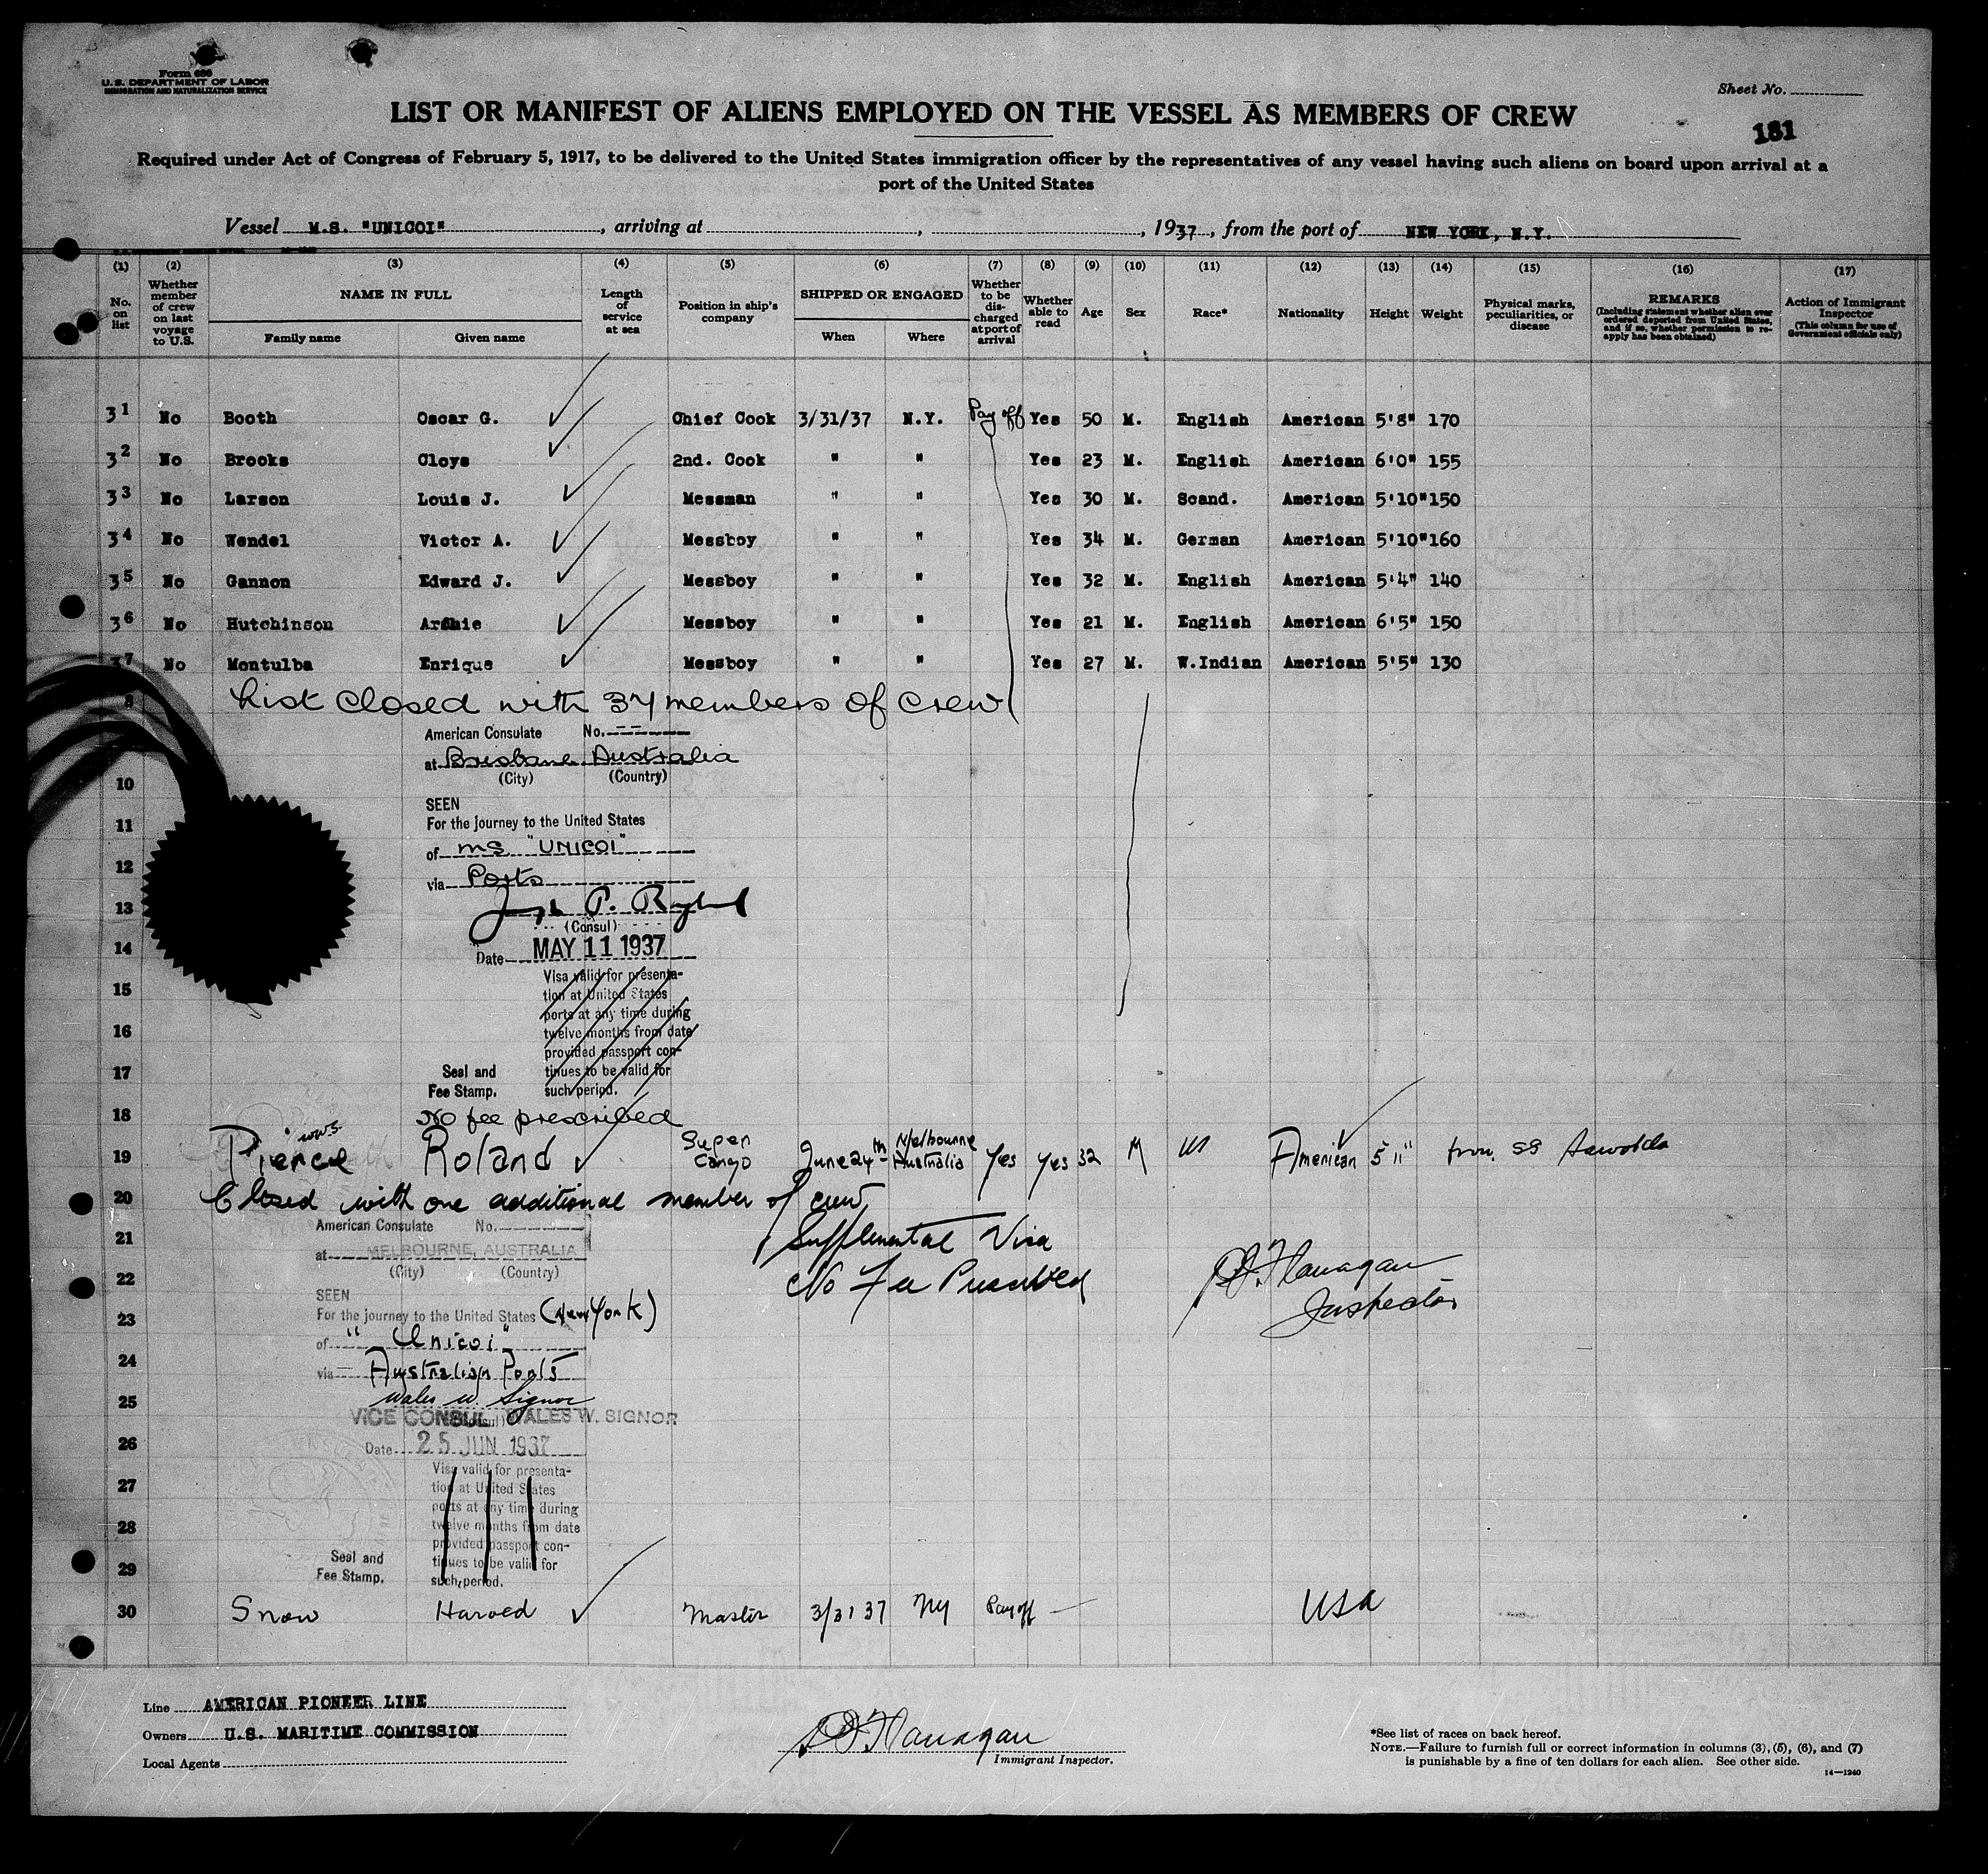 Form 680
U.S. DEPARTMENT OF LABOR
IMMIGRATION AND NATURALIZATION SERVICE
Sheet No.
LIST OR MANIFEST OF ALIENS EMPLOYED ON THE VESSEL AS MEMBERS OF CREW
181
Required under Act of Congress of February 5, 1917, to be delivered to the United States immigration officer by the representatives of any vessel having such aliens on board upon arrival at a
port of the United States
Vessel M.S. "UNICOI", arriving at , , 1937, from the port of NEW YORK, N.Y.
(1) (2) (3) (4) (5) (6) (7) (8) (9) (10) (11) (12) (13) (14) (15) (16) (17)
No. on list
Whether member of crew on last voyage to U.S.
NAME IN FULL
Family name Given name
Length of service at sea
Position in ship's company
SHIPPED OR ENGAGED
When Where
Whether to be discharged at port of arrival
Whether able to read
Age
Sex
Race*
Nationality
Height
Weight
Physical marks, peculiarities, or disease
REMARKS
(Including statement whether alien ever ordered deported from United States, and if so, whether permission to reapply has been obtained)
Action of Immigrant Inspector
(This column for use of Government officials only)
31 No Booth Oscar G. Chief Cook 3/31/37 N.Y. Pay off Yes 50 M. English American 5'8" 170
32 No Brooks Cloys 2nd. Cook " " Yes 23 M. English American 6'0" 155
33 No Larson Louis J. Messman " " Yes 30 M. Scand. American 5'10" 150
34 No Wendel Victor A. Messboy " " Yes 34 M. German American 5'10" 160
35 No Gannon Edward J. Messboy " " Yes 32 M. English American 5'4" 140
36 No Hutchinson Archie Messboy " " Yes 21 M. English American 6'5" 150
37 No Montulba Enrique Messboy " " Yes 27 M. W.Indian American 5'5" 130
8 List closed with 37 members of crew
American Consulate No.
at Brisbane Australia
(City) (Country)
10
SEEN
11 For the journey to the United States
of MS "UNICOI"
12
via Ports
13
(Consul)
14 Date MAY 11 1937
Visa valid for presenta-
15 tion at United States
ports at any time during
16 twelve months from date
provided passport con-
17 Seal and tinues to be valid for
Fee Stamp. such period.
18 No fee prescribed
w.w.s.
19 Pierce Roland Super Cargo June 24th Melbourne Australia Yes Yes 32 M US American 5 11" from SS
20 Closed with one additional member of crew
American Consulate No.
21 at MELBOURNE, AUSTRALIA Supplemental Visa
22 (City) (Country) No Fee Prescribed
SEEN
For the journey to the United States (New York)
23
of "Unicoi"
24 via Australian Ports
Wales W. Signor
25 VICE CONSUL WALES W. SIGNOR
(Consul)
26 Date 25 JUN 1937
Visa valid for presenta-
27 tion at United States
ports at any time during
28 twelve months from date
provided passport con-
29 Seal and tinues to be valid for
Fee Stamp. such period.
Flanagan
Inspector
30 Snow Harold Master 3/31 37 NY Pay off USA
Line AMERICAN PIONEER LINE
Owners U.S. MARITIME COMMISSION
Local Agents
Flanagan
Immigrant Inspector.
*See list of races on back hereof.
NOTE.—Failure to furnish full or correct information in columns (3), (5), (6), and (7)
is punishable by a fine of ten dollars for each alien. See other side.
14—1240